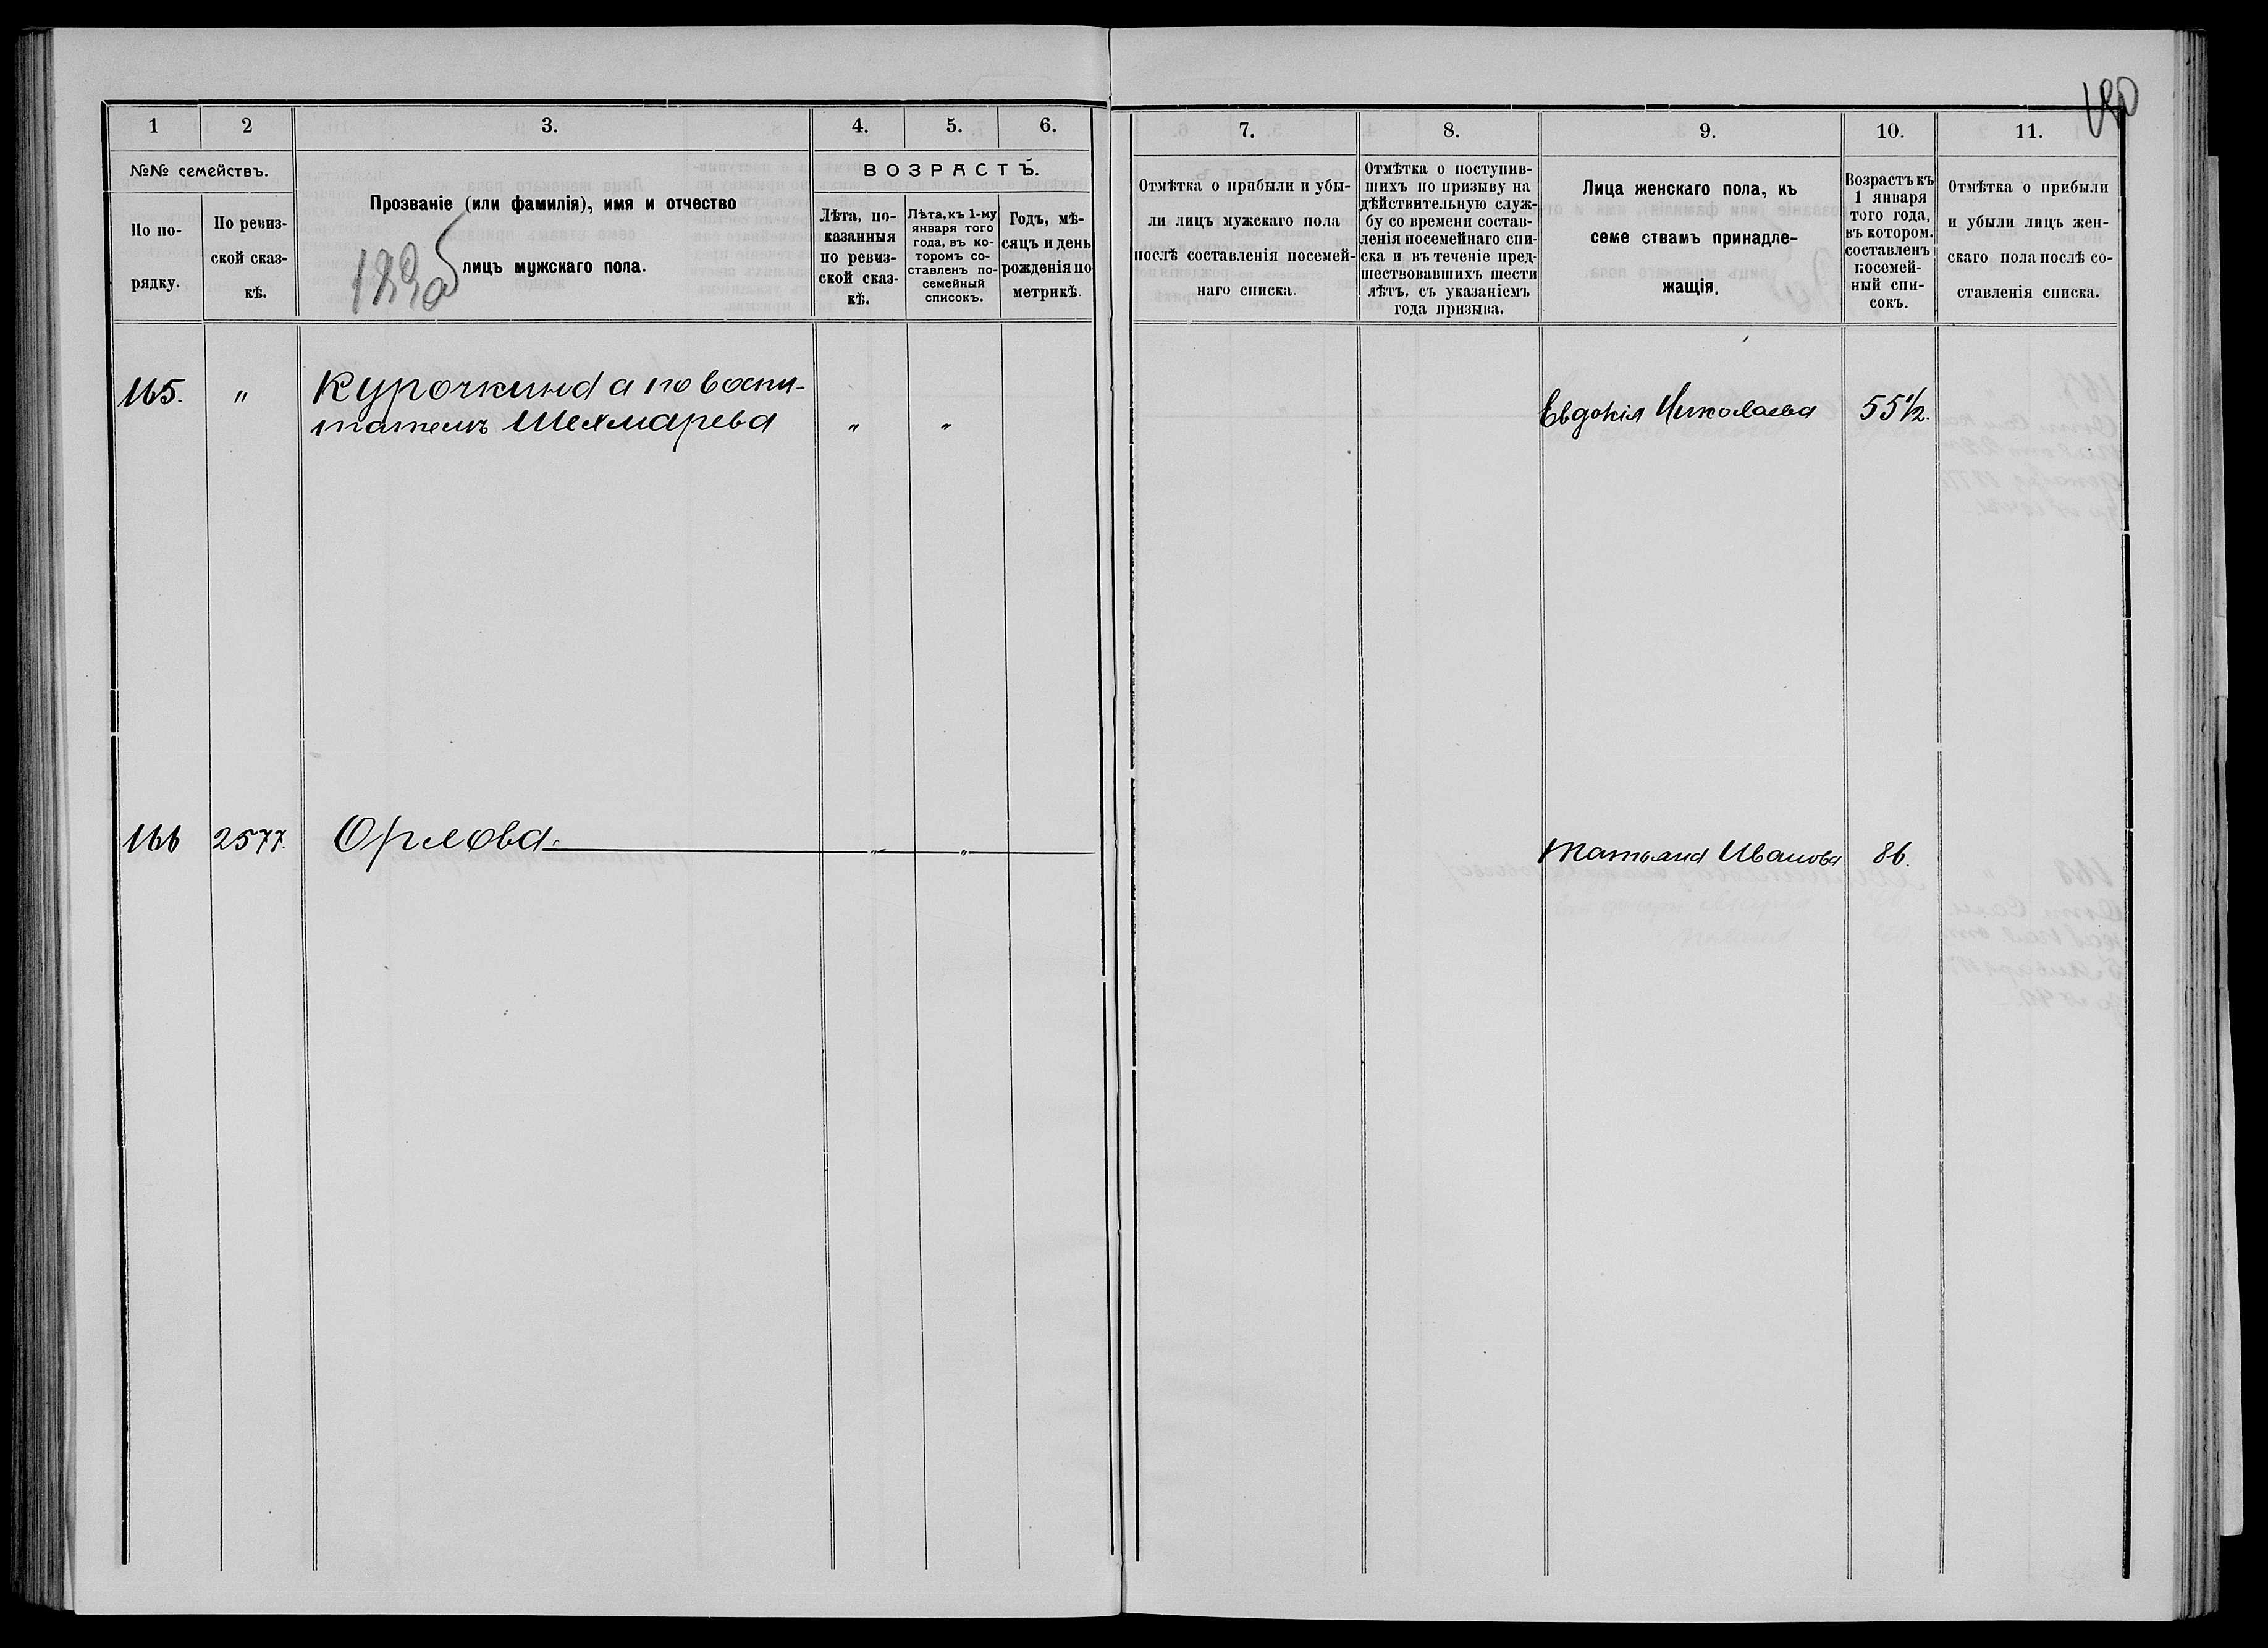 1 2 3. 4. 5. 6.
№№ семействъ.
По по-
рядку.
По ревиз-
ской сказ-
кѣ.
Прозваніе (или фамилія), имя и отчество
лицъ мужскаго пола.
ВОЗРАСТЪ.
Лѣта, по-
казанныя
по ревиз-
ской сказ-
кѣ.
Лѣта, къ 1-му
января того
года, въ ко-
торомъ со-
ставленъ по-
семейный
списокъ.
Годъ, мѣ-
сяцъ и день
рожденія по
метрикѣ.
165. " Курочкина а по воспи-
тателю Шехмарева " "
166 2577. Орлова. " "
7. 8. 9. 10. 11.
Отмѣтка о прибыли и убы-
ли лицъ мужскаго пола
послѣ составленія посемей-
наго списка.
Отмѣтка о поступив-
шихъ по призыву на
дѣйствительную служ-
бу со времени состав-
ленія посемейнаго спи-
ска и въ теченіе пред-
шествовавшихъ шести
лѣтъ, съ указаніемъ
года призыва.
Лица женскаго пола, къ
семе ствамъ принадле-
жащія.
Возрастъ къ
1 января
того года,
въ котором.
составленъ
посемей-
ный спи-
сокъ.
Отмѣтка о прибыли
и убыли лицъ жен-
скаго пола послѣ со-
ставленія списка.
Евдокія Николаева 55½.
Татьяна Иванова 86.